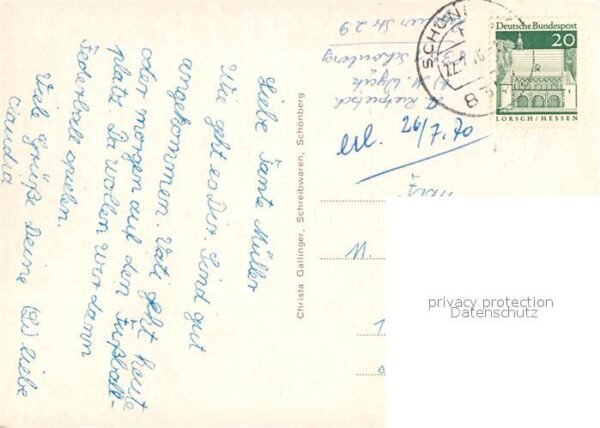 Liebe Tante Müller
Wie geht es Dir. Sind gut
angekommen. Vati geht heute
oder morgen auf den Fußball-
platz. Da wollen wir dann
Federball spielen.
Viele Grüße Deine
Claudia
Christa Gallinger, Schreibwaren, Schönberg
Str 29
Schönberg
erl. 26/7.70
SCHÖN
22.7.
8
Deutsche Bundespost
20
LORSCH/HESSEN
M.
privacy protection
Datenschutz